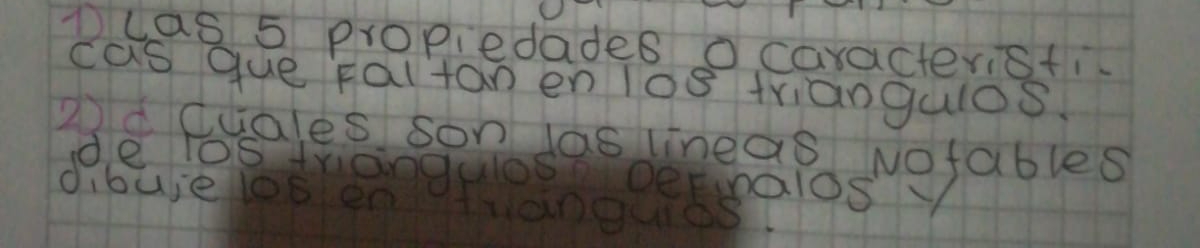 1) Las 5 propiedades o caracteristi-
cas que Faltan en los triangulos.
2) ¿ Cuales son las lineas Notables
de los triangulos? Definalos y
dibuje los en triangulos.